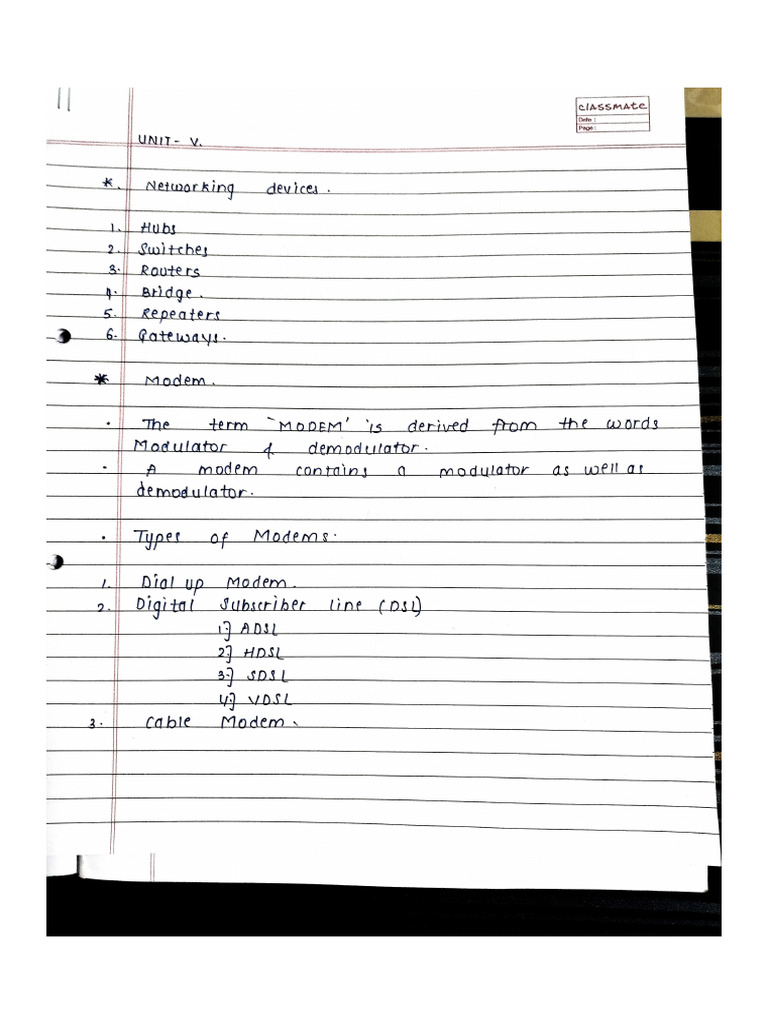 classmate
Date :
Page :
UNIT - V.
*. Networking devices.
1. Hubs
2. Switches
3. Routers
4. Bridge.
5. Repeaters
6. Gateways.
* Modem.
• The term 'MODEM' is derived from the words
Modulator & demodulator.
• A modem contains a modulator as well as
demodulator.
• Types of Modems.
1. Dial up Modem.
2. Digital Subscriber line (DSL)
1] ADSL
2] HDSL
3] SDSL
4] VDSL
3. Cable Modem.